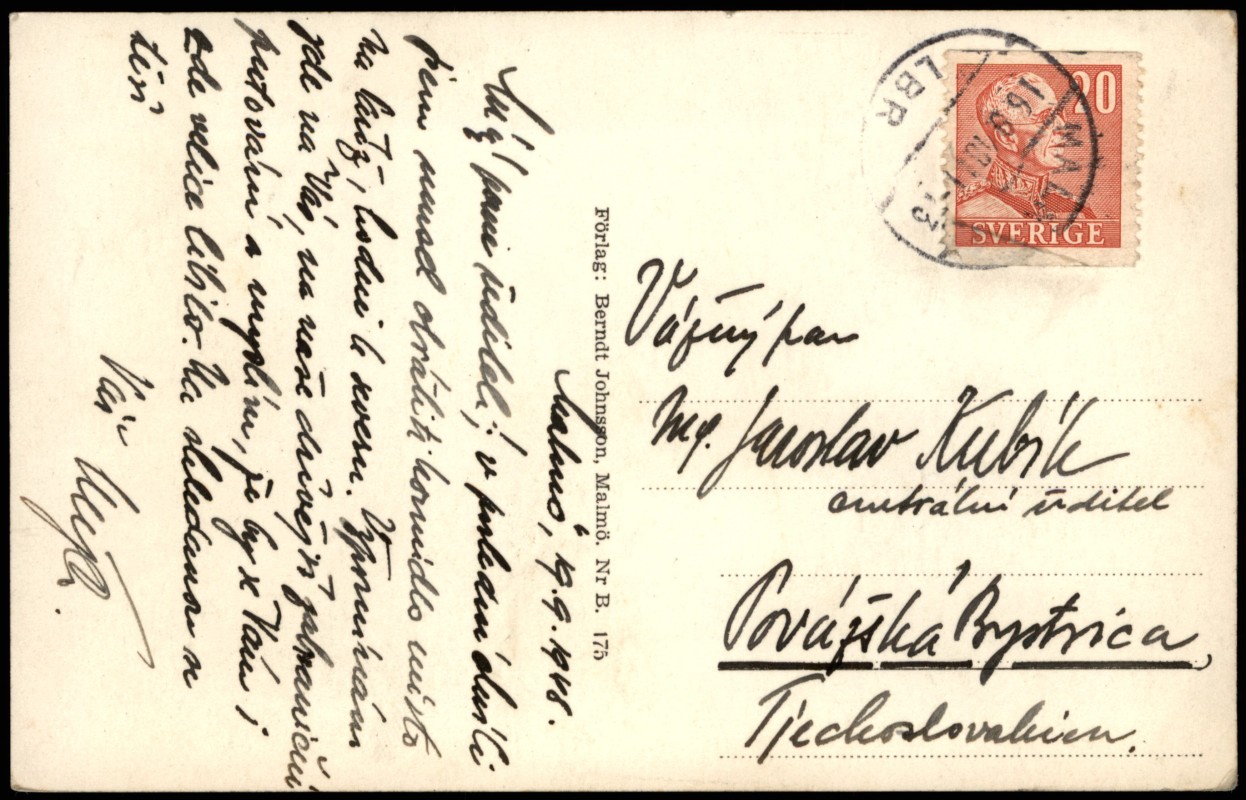 Malmö, 19.9.1948.
Můj pane řediteli; v poslední chvíli
jsem musel obrátit kormidlo místo
na západ, hodně k severu. Vzpomínám
zde na Vás, na naše dřívější zahraniční
putování a myslím, že by se Vám i
zde velice líbilo. Na shledanou a
Váš
Förlag: Berndt Johnsson, Malmö. Nr B. 175
20
SVERIGE
MALM
LBR
Vážný pan
Jaroslav Kubík
centrální ředitel
Povážská Bystrica,
Tjechoslovakien.